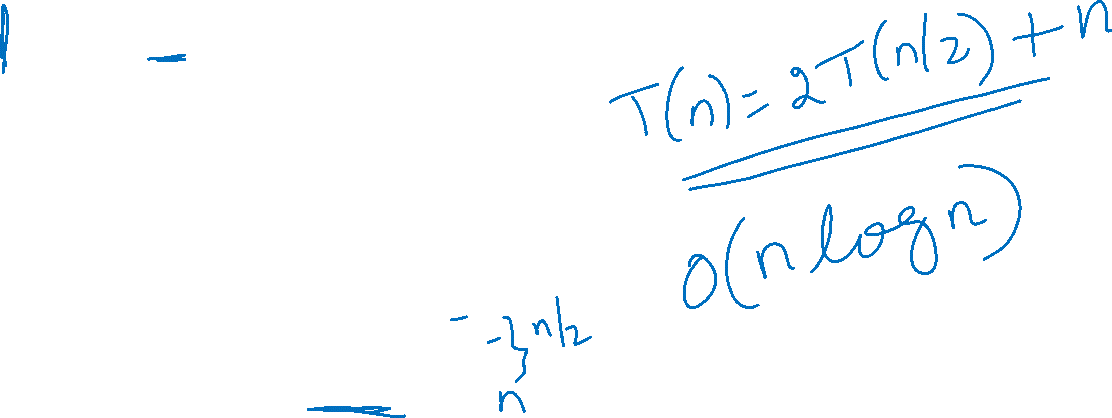 T(n) = 2T(n/2) + n
O(n log n)
n/2
n